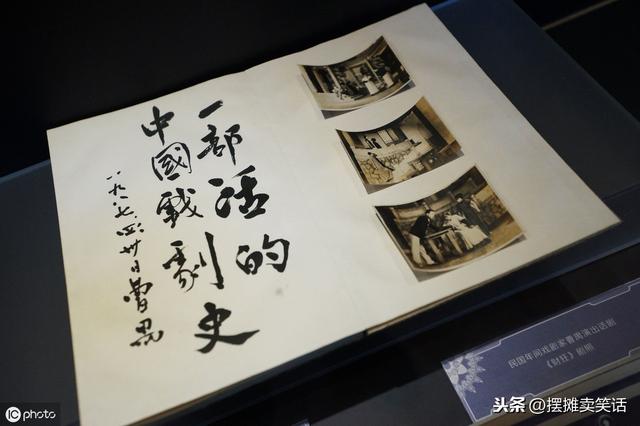 一部活的
中國戲劇史
一九八七.四.卅日曹禺
民国年间戏剧家曹禺演出话剧
《财狂》剧照
iC photo
头条 @摆摊卖笑话